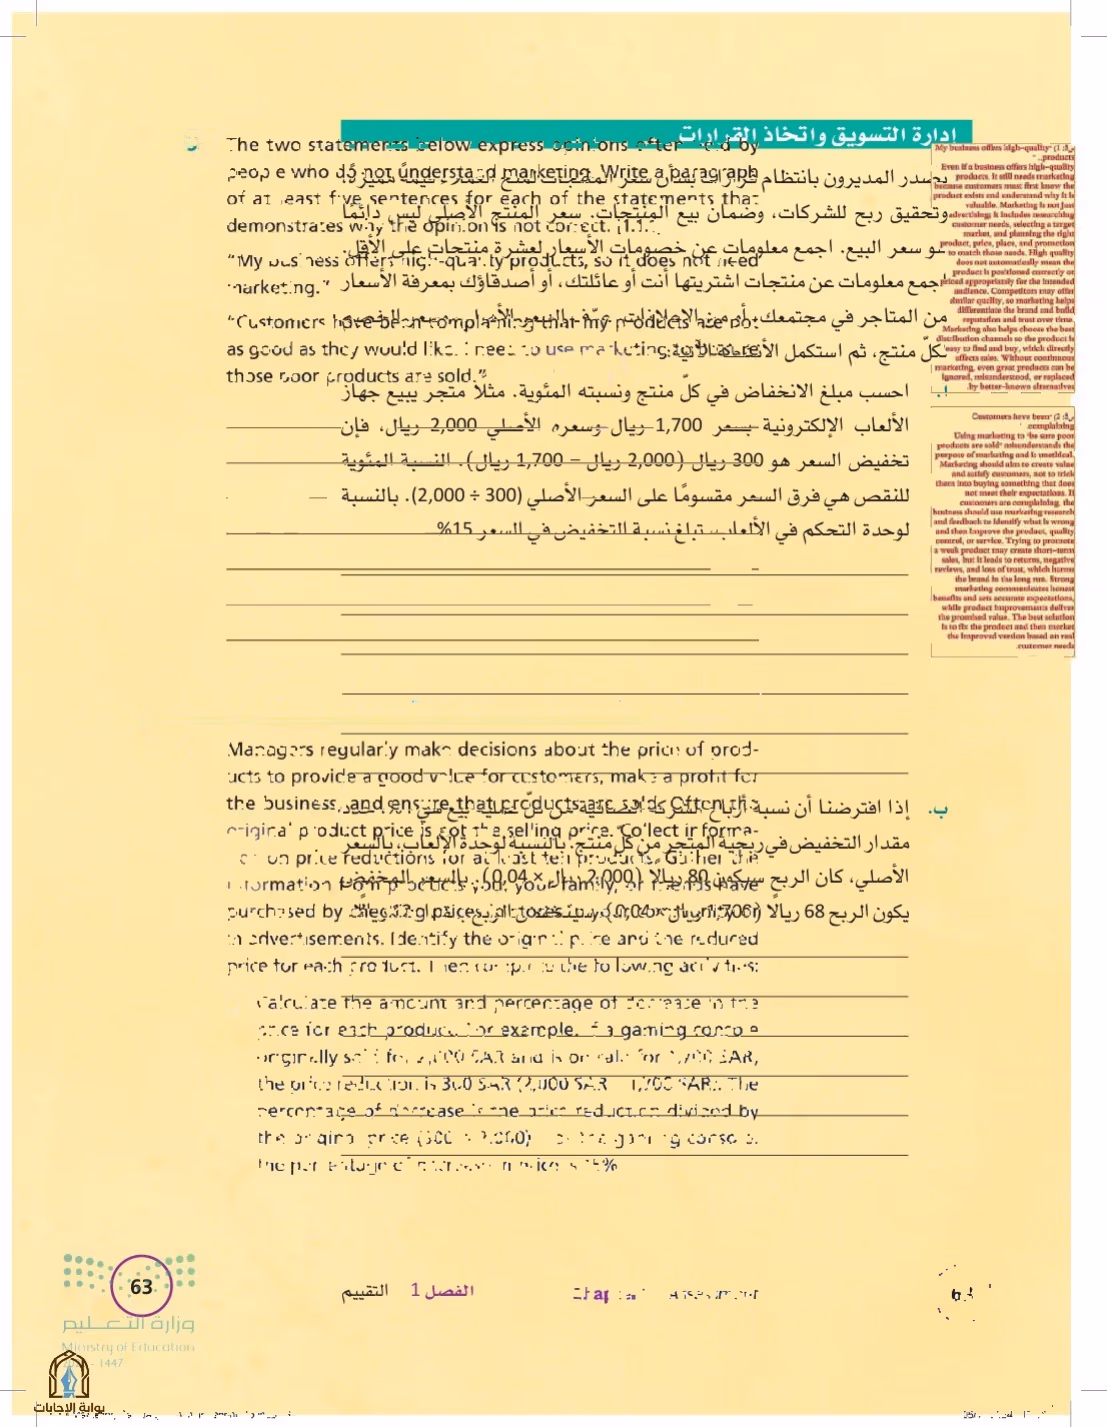 إدارة التسويق واتخاذ القرارات
The two statements below express opinions often held by
people who do not understand marketing. Write a paragraph
of at least five sentences for each of the statements that
demonstrates why the opinion is not correct.
"My business offers high-quality products, so it does not need
marketing."
"Customers have been complaining that my products are not
as good as they would like. I need to use marketing to
those poor products are sold."
يصدر المديرون بانتظام قرارات بشأن سعر المنتجات لمنح العملاء قيمة مميزة،
وتحقيق ربح للشركات، وضمان بيع المنتجات. سعر المنتج الأصلي ليس دائمًا
هو سعر البيع. اجمع معلومات عن خصومات الأسعار لعشرة منتجات على الأقل
اجمع معلومات عن منتجات اشتريتها أنت أو عائلتك، أو أصدقاؤك بمعرفة الأسعار
من المتاجر في مجتمعك، أو من الإعلانات.
لكلّ منتج، ثم استكمل الأنشطة الآتية:
احسب مبلغ الانخفاض في كلّ منتج ونسبته المئوية. مثلاً متجر يبيع جهاز
الألعاب الإلكترونية بسعر 1,700 ريال وسعره الأصلي 2,000 ريال، فإن
تخفيض السعر هو 300 ريال (2,000 ريال – 1,700 ريال). النسبة المئوية
للنقص هي فرق السعر مقسومًا على السعر الأصلي (300 ÷ 2,000). بالنسبة
لوحدة التحكم في الألعاب، تبلغ نسبة التخفيض في السعر 15%
My business offers high-quality
products
Even if a business offers high-quality
products. It still needs marketing
because customers must first know the
product exists and understand why it is
valuable. Marketing is not just
advertising; it includes researching
customer needs, selecting a target
market, and planning the right
product, price, place, and promotion
to match those needs. High quality
does not automatically mean the
product is positioned correctly or
priced appropriately for the intended
audience. Competitors may offer
similar quality, so marketing helps
differentiate the brand and build
reputation and trust over time.
Marketing also helps choose the best
distribution channels so the product is
easy to find and buy, which directly
affects sales. Without continuous
marketing, even great products can be
ignored, misunderstood, or replaced
by better-known alternatives.
Customers have been
complaining
Using marketing to "be sure poor
products are sold" misunderstands the
purpose of marketing and is unethical.
Marketing should aim to create value
and satisfy customers, not to trick
them into buying something that does
not meet their expectations. If
customers are complaining, the
business should use marketing research
and feedback to identify what is wrong
and then improve the product, quality
control, or service. Trying to promote
a weak product may create short-term
sales, but it leads to returns, negative
reviews, and loss of trust, which harms
the brand in the long run. Strong
marketing communicates honest
benefits and sets accurate expectations,
while product improvements deliver
the promised value. The best solution
is to fix the product and then market
the improved version based on real
customer needs.
Managers regularly make decisions about the price of prod-
ucts to provide a good value for customers, make a profit for
the business, and ensure that products are sold. Often the
original product price is not the selling price. Collect informa-
tion on price reductions for at least ten products. Gather the
information from products you, your family, or friends have
purchased by checking prices in stores in your community or
in advertisements. Identify the original price and the reduced
price for each product. Then complete the following activities:
ب. إذا افترضنا أن نسبة أرباح الشركة الصافية من كلّ عملية بيع هي حدد
مقدار التخفيض في ربحية المتجر من كل منتج. بالنسبة لوحدة الألعاب، بالسعر
الأصلي، كان الربح سيكون 80 ريالًا (2,000 ريال × 0,04). بالسعر المخفض
يكون الربح 68 ريالًا (1,700 ريال × 0,04)
Calculate the amount and percentage of decrease in the
price for each product. For example, if a gaming console
originally sold for 2,000 SAR and is on sale for 1,700 SAR,
the price reduction is 300 SAR (2,000 SAR – 1,700 SAR). The
percentage of decrease is the price reduction divided by
the original price (300 ÷ 2,000). For the gaming console,
the percentage of decrease in price is 15%
63
وزارة التعليم
Ministry of Education
1447
الفصل 1 التقييم
Chapter Assessment
63
بوابة الإجابات